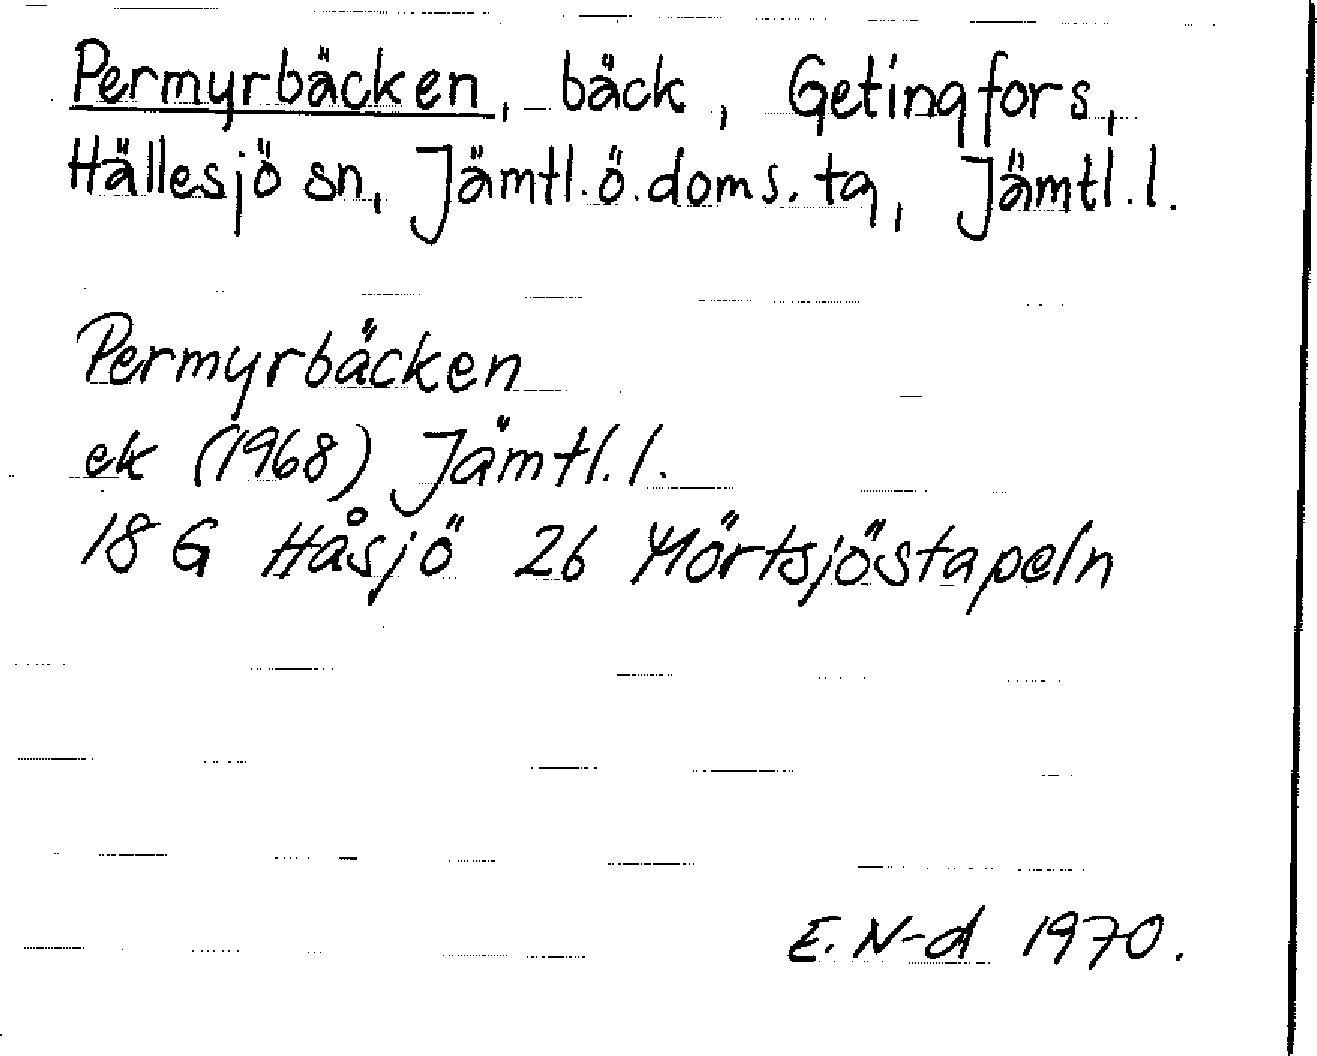 Permyrbäcken, bäck, Getingfors,
Hällesjö sn, Jämtl.ö.doms.tg, Jämtl.l.
Permyrbäcken
ek (1968) Jämtl.l.
18 G Håsjö 26 Mörtsjöstapeln
E. N-d 1970.